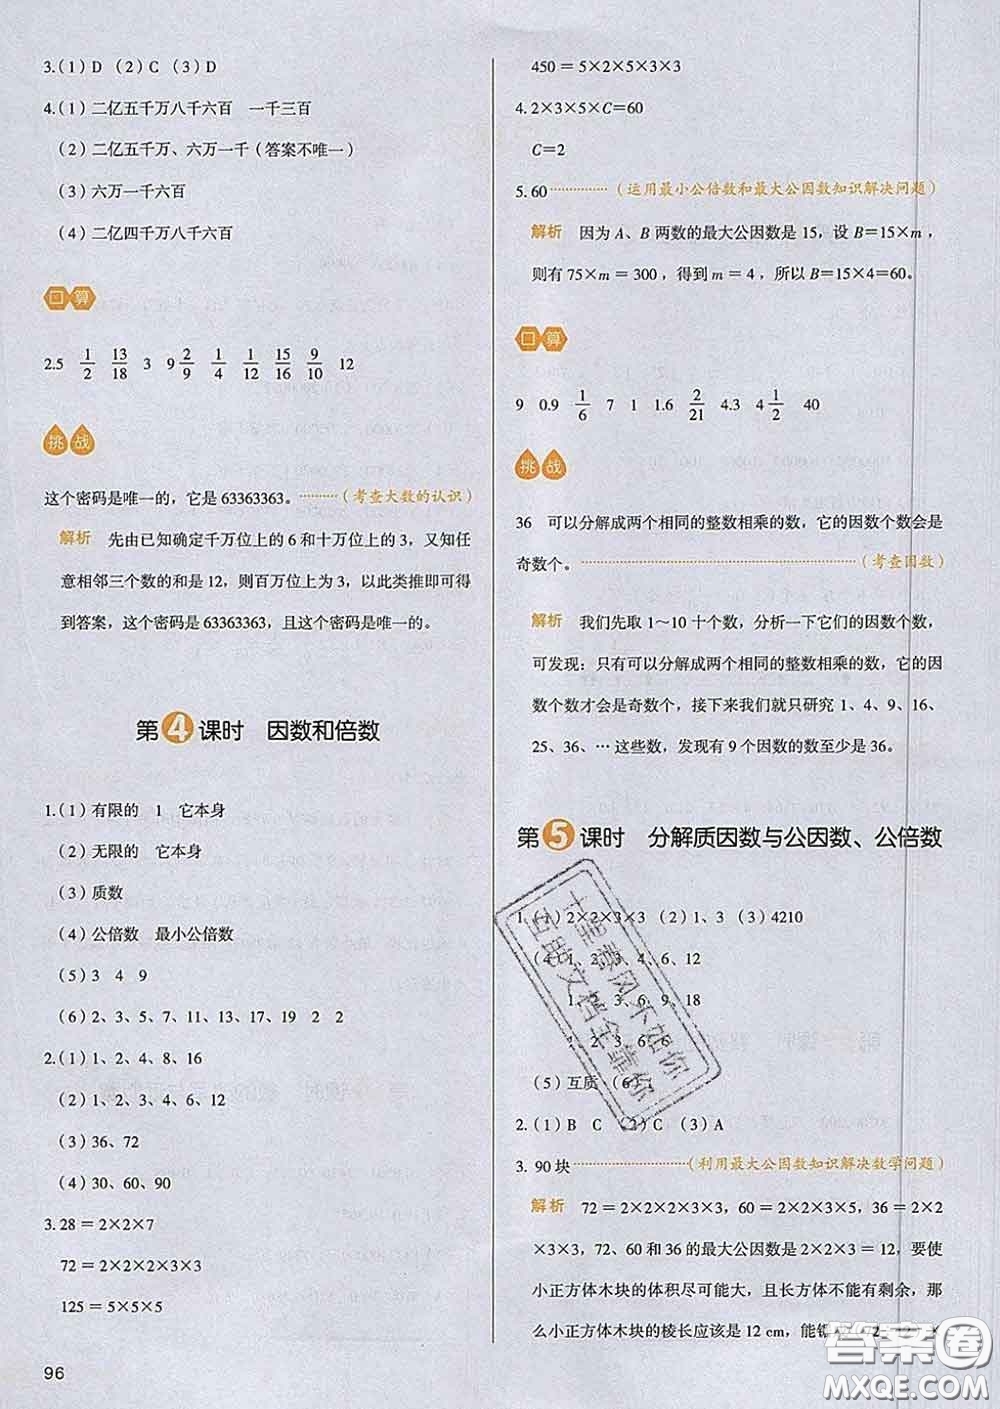 3.(1) D (2) C (3) D
4.(1) 二亿五千万八千六百 一千三百
(2) 二亿五千万、六万一千(答案不唯一)
(3) 六万一千六百
(4) 二亿四千万八千六百
口算
2.5 1/2 13/18 3 9 2/9 1/4 1/12 15/16 9/10 12
挑战
这个密码是唯一的，它是 63363363。………(考查大数的认识)
解析 先由已知确定千万位上的 6 和十万位上的 3，又知任
意相邻三个数的和是 12，则百万位上为 3，以此类推即可得
到答案，这个密码是 63363363，且这个密码是唯一的。
第4课时 因数和倍数
1.(1) 有限的 1 它本身
(2) 无限的 它本身
(3) 质数
(4) 公倍数 最小公倍数
(5) 3 4 9
(6) 2、3、5、7、11、13、17、19 2 2
2.(1) 1、2、4、8、16
(2) 1、2、3、4、6、8、12、24
(3) 36、72
(4) 30、60、90
3. 28＝2×2×7
72＝2×2×2×3×3
125＝5×5×5
96
450＝5×2×5×3×3
4. 2×3×5×C＝60
C＝2
5. 60……………(运用最小公倍数和最大公因数知识解决问题)
解析 因为 A、B 两数的最大公因数是 15，设 B＝15×m，
则有 75×m＝300，得到 m＝4，所以 B＝15×4＝60。
口算
9 0.9 1/6 7 1 1.6 2/21 4.3 4 1/2 40
挑战
36 可以分解成两个相同的整数相乘的数，它的因数个数会是
奇数个。……………(考查因数)
解析 我们先取 1～10 十个数，分析一下它们的因数个数，
可发现：只有可以分解成两个相同的整数相乘的数，它的因
数个数才会是奇数个，接下来我们就只研究 1、4、9、16、
25、36、… 这些数，发现有 9 个因数的数至少是 36。
第5课时 分解质因数与公因数、公倍数
1.(1) 2×2×3×3 (2) 1、3 (3) 4210
(4) 1、2、3、4、6、12
1、2、3、6、9、18
1、2、3、6 6
(5) 互质 (6)
2.(1) B C (2) C (3) A
3. 90 块……………(利用最大公因数知识解决数学问题)
解析 72＝2×2×2×3×3，60＝2×2×3×5，36＝2×2
×3×3，72、60 和 36 的最大公因数是 2×2×3＝12，要使
小正方体木块的体积尽可能大，且长方体不能有剩余，那
么小正方体木块的棱长应该是 12 cm，能锯
十里春风不如你
百晓文档全靠你
答案圈
MXQE.COM